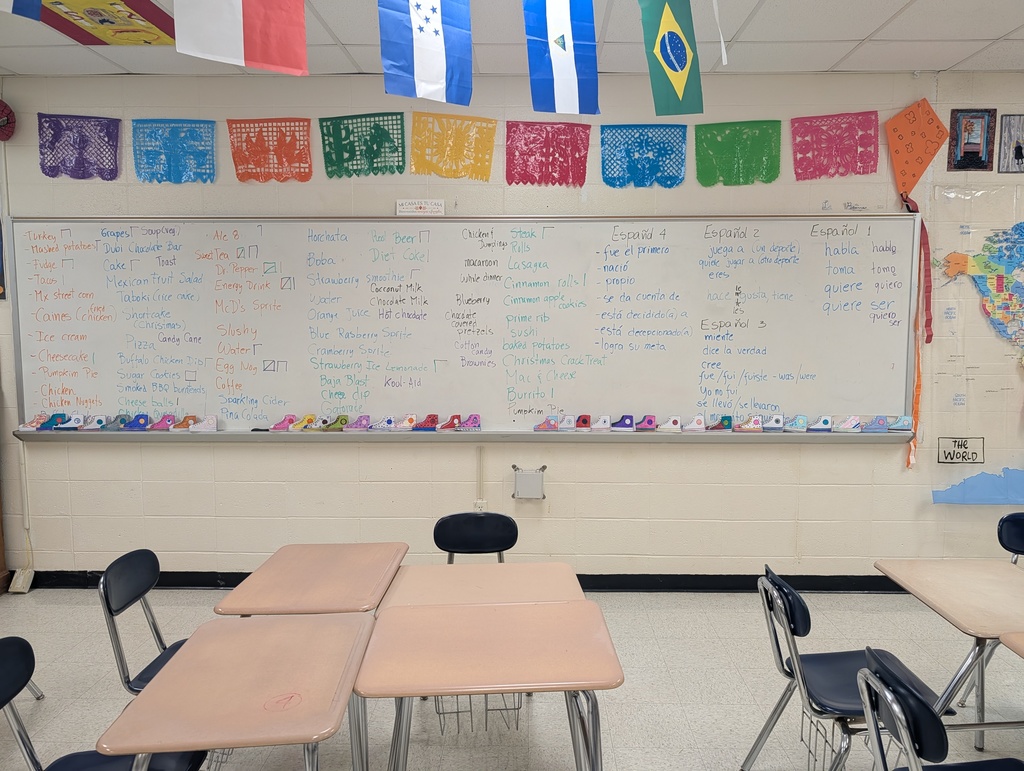 MI CASA ES TU CASA
Turkey
Mashed potatoes
Fudge
Tacos
Mx Street corn
Canes (chicken)
Ice cream
Cheesecake
Pumpkin Pie
Chicken
Chicken Nuggets
Grapes Soup (veg)
Dubi Chocolate Bar
Cake Toast
Mexican Fruit Salad
Shortcake
(Christmas)
Candy Cane
Pizza
Buffalo Chicken Dip
Sugar Cookies
Smoked BBQ burnt ends
Cheese balls
Ale 8
Sweet Tea
Dr Pepper
Energy Drink
McD's Sprite
Slushy
Water
Egg Nog
Coffee
Sparkling Cider
Pina Colada
Horchata
Boba
Strawberry smoothie
Water
Orange Juice
Blue Rasberry Sprite
Cranberry Sprite
Strawberry Ice Lemonade
Baja Blast
Cheese dip
Root Beer
Diet Coke
Coconut Milk
Chocolate Milk
Hot chocolate
Kool-Aid
Chicken &
Dumplings
macaroon
whole dinner
Blueberry
Chocolate
covered
pretzels
Cotton
candy
Brownies
Steak
Rolls
Lasagna
Cinnamon rolls
Cinnamon apple
cookies
prime rib
Sushi
baked potatoes
Christmas Crack Treat
Mac & Cheese
Burrito
Pumpkin Pie
Español 4
- fue el primero
- nació
- propio
- se da cuenta de
- está decidido(a) a
- está decepcionado(a)
- logra su meta
Español 2
juega a (un deporte)
quiere jugar a (otro deporte)
eres
hace
me
te
le
les
gusta, tiene
Español 3
miente
dice la verdad
cree
fue/fui/fuiste - was/were
Yo no fui
se llevó/se llevaron
Español 1
habla hablo
toma tomo
quiere quiero
quiere ser
quiero
ser
THE
WORLD